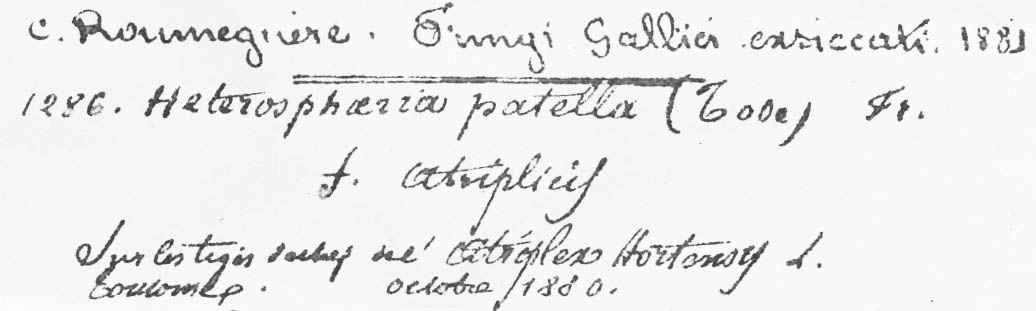 C. Roumeguere. Fungi Gallici exsiccati. 1881
1286. Heterosphæria patella (Tode) Fr.
f. atriplicis
Sur les tiges seches de' Atriplex Hortensis L.
octobre 1880.